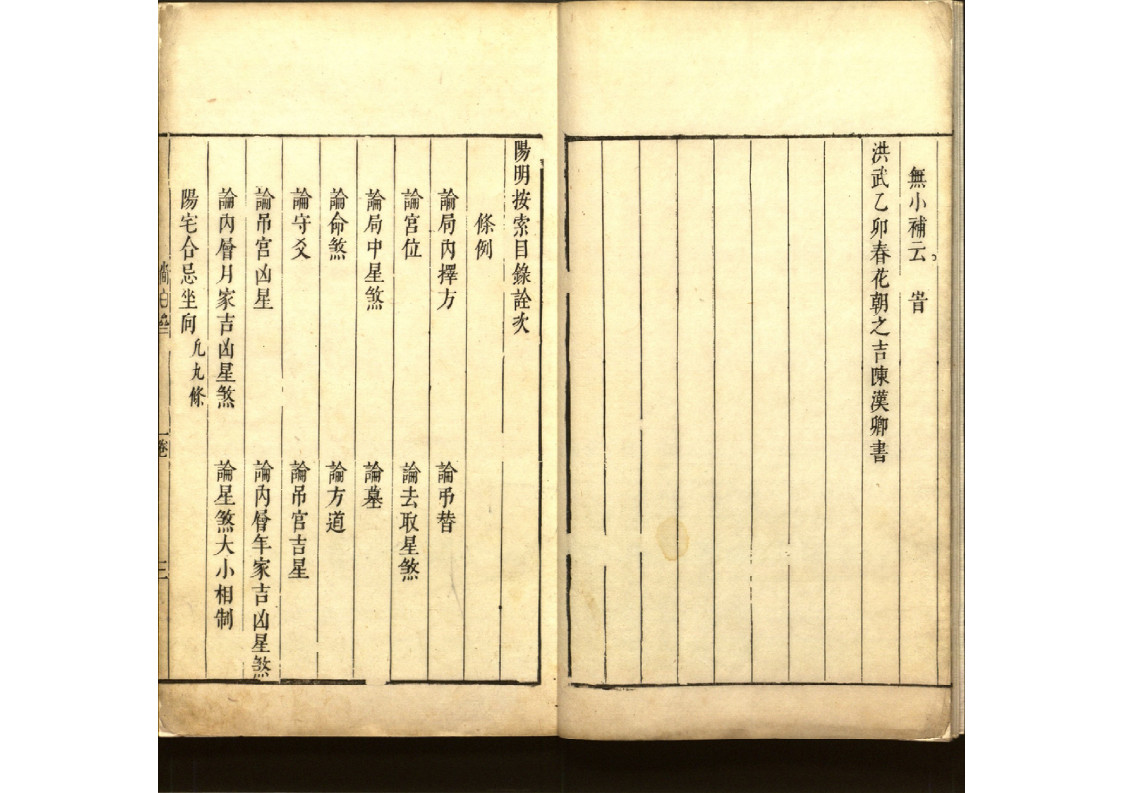 無小補云 旹
洪武乙卯春花朝之吉陳漢卿書
陽明按索目錄詮次
條例
論局內擇方 論弔替
論宮位 論去取星煞
論局中星煞 論墓
論命煞 論方道
論守爻 論吊宮吉星
論吊宮凶星 論內層年家吉凶星煞
論內層月家吉凶星煞 論星煞大小相制
陽宅合忌坐向 凡九條
一卷 三